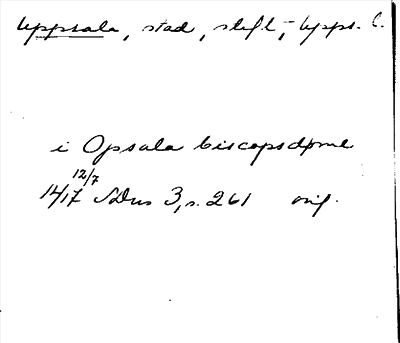 Uppsala, stad, stift, – Upps. l.
i Opsala biscopsdøme
12/7
1417 SDns 3, s. 261 orig.